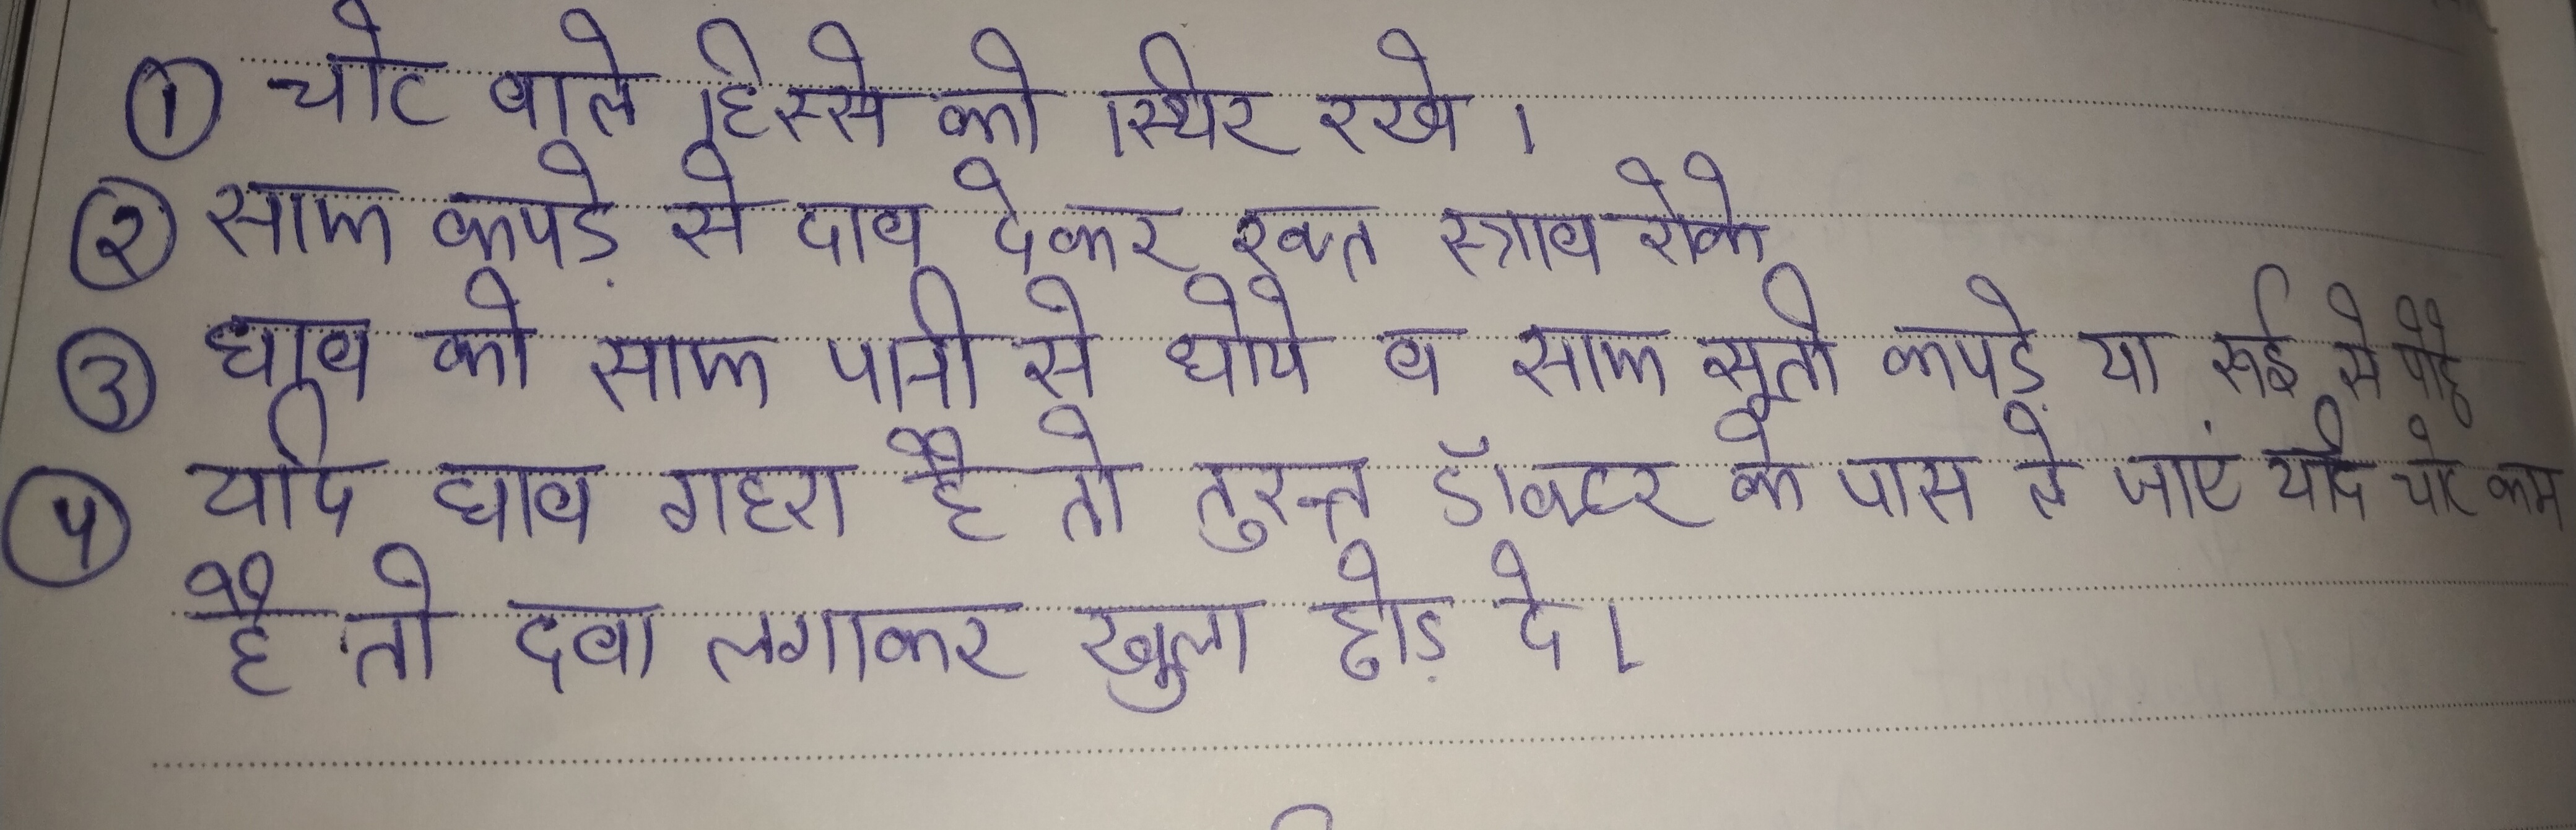 ① चोट वाले हिस्से को स्थिर रखे ।
② साफ कपड़े से दाव देकर रक्त स्त्राव रोके
③ घाव को साफ पानी से धोये व साफ सूती कपड़े या रूई से पोछे
④ यदि घाव गहरा है तो तुरन्त डॉक्टर के पास ले जाएं यदि चोट कम
है तो दवा लगाकर खुला छोड़ दे ।